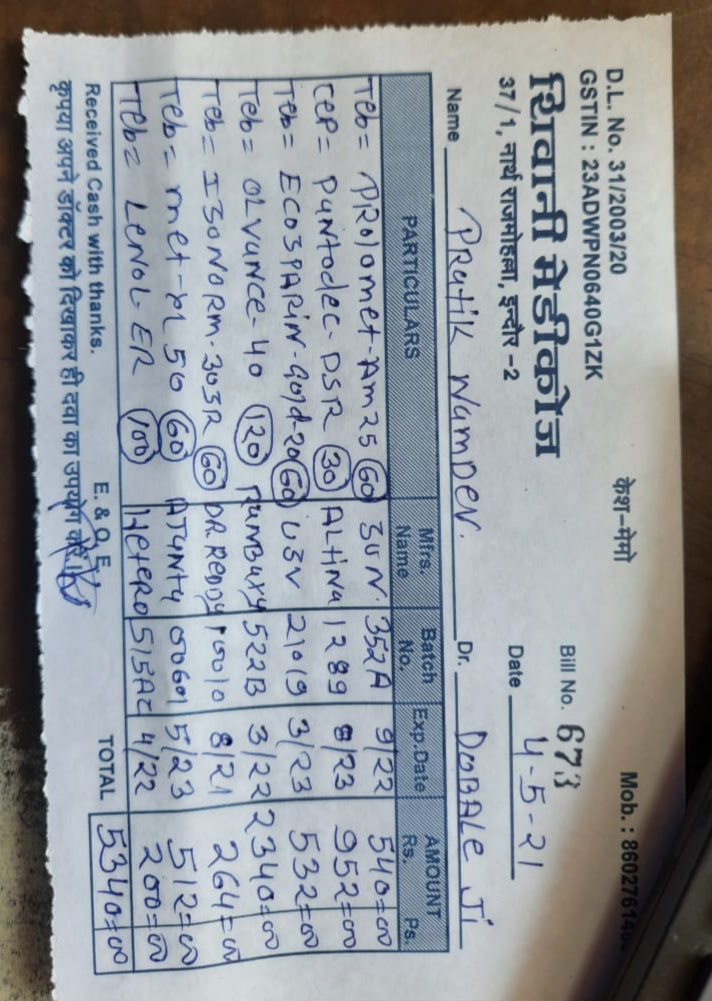 D.L. No. 31/2003/20 केश-मेमो Mob. : 86027614
GSTIN : 23ADWPN0640G1ZK
शिवानी मेडीकोज Bill No. 673
37/1, नार्थ राजमोहल्ला, इन्दौर -2 Date 4-5-21
Name Pratik Namdev. Dr. DOBALE Ji
PARTICULARS Mfrs. Name Batch No. Exp.Date AMOUNT Rs. Ps.
Teb= PROlomet-Am25 60 SUN. 352A 9/22 540=00
CEP= Pantodec-DSR 30 ALtina 1289 8/23 952=00
Teb= ECOSPARIN-Gold-20 60 USV 21019 3/23 532=00
Teb= OLVANCE-40 120 Ranbaxy 522B 3/22 2340=00
Teb= ISONORM-30SR 60 DR REDDY 10010 8/21 264=00
Teb= met-xl 50 60 AJANTA 00601 5/23 512=00
Teb= LENOL-ER 100 Hetero 515AC 4/22 200=00
Received Cash with thanks. E. & O. E. TOTAL 5340=00
कृपया अपने डॉक्टर को दिखाकर ही दवा का उपयोग करें।